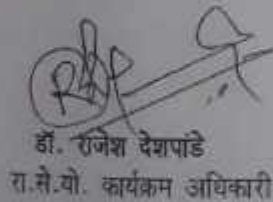 डॉ. राजेश देशपांडे
रा.से.यो. कार्यक्रम अधिकारी